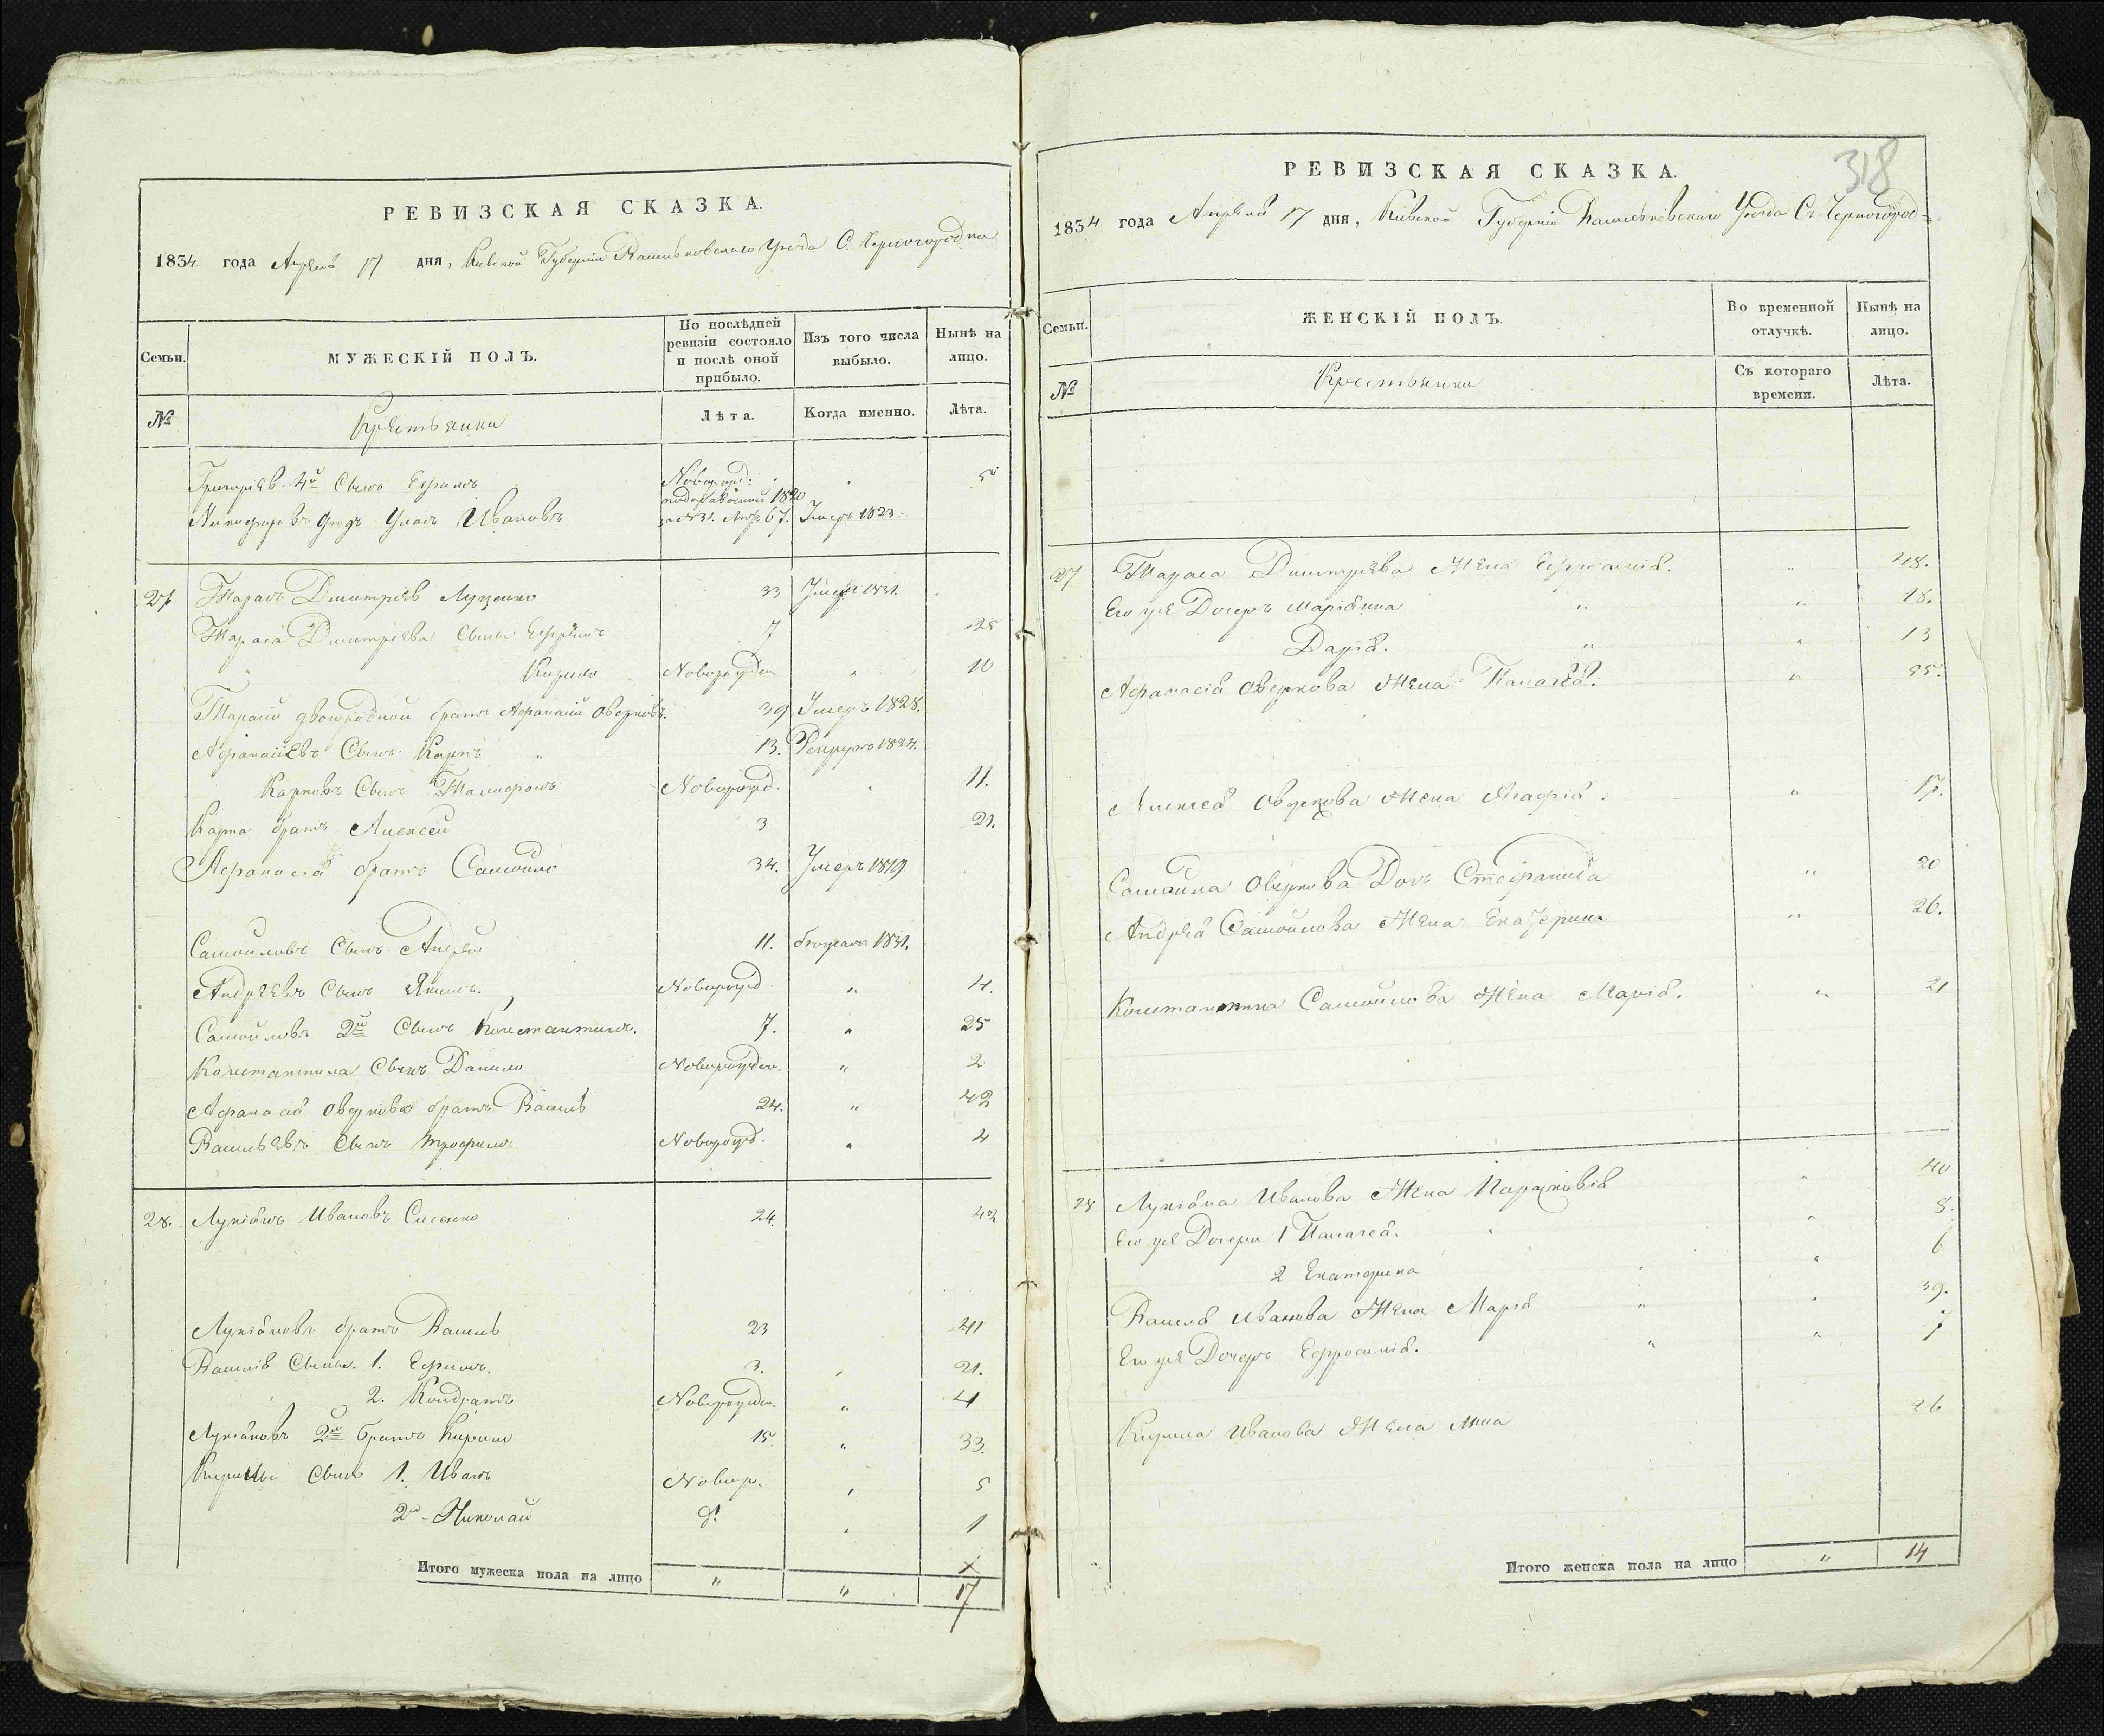 РЕВИЗСКАЯ СКАЗКА.
1834 года Апреля 17 дня, Киевской Губернии Васильковского Уезда С. Черногородка
Семьи. МУЖЕСКІЙ ПОЛЪ. По послѣдней ревизіи состояло и послѣ оной прибыло. Изъ того числа выбыло. Нынѣ на лицо.
№ Крестьянки Лѣта. Когда именно. Лѣта.
Григориев 4й Сынъ Ефимъ Новорожд: 5
Никифоровъ Улас Ивановъ 67. Умеръ 1823.
27 Тарасъ Дмитриев Луценко 33 Умеръ 1831.
Тараса Дмитриева Сыны Ефремъ 7 25
Кирило Новорожден 10
Тарасій двоюродной братъ Афанасій Оверковъ. 39 Умеръ 1828.
Афанасіевъ Сынъ Карпъ 13. Рекрутъ 1824.
Карповъ Сынъ Новорожд. 11.
Карпа братъ Алексей 3 21.
Афанасія братъ Самойло 34. Умеръ 1819
Самойловъ Сынъ Андрей 11. 1831.
Андреевъ Сынъ Якимъ. Новорожд. 4.
Самойловъ 2й Сынъ Константинъ. 7. 25
Константина Сынъ Данило Новорожден. 2
Афанасія Оверкова братъ Василь 24. 42
Васильевъ Сынъ Трофимъ Новорожд. 4
28. Лукіянъ Ивановъ 24. 42
Лукіяновъ братъ Василь 23 41
Василя Сыны. 1. Ефимъ. 3. 21.
2. Кондратъ Новорожден. 4
Лукіяновъ 2й братъ Кирило 15. 33.
Кирилы Сынъ 1. Иванъ Новор. 5
2й Николай 1
Итого мужеска пола на лицо " " 17
318
РЕВИЗСКАЯ СКАЗКА.
1834 года Апреля 17 дня, Киевской Губерніи Васильковскаго Уезда С. Черногород=
Семьи. ЖЕНСКІЙ ПОЛЪ. Во временной отлучкѣ. Нынѣ на лицо.
№ Крестьянки Съ котораго времени. Лѣта.
27 Тараса Дмитриева Жена 48.
Его же Дочеръ Маріянна 18.
Дарія. 13
Афанасія Оверкова Жена Палагея. 55.
Алексея Оверкова Жена Агафія. 17.
Самойла Оверкова Дочъ Стефанида 20
Андрея Самойлова Жена Екатерина 26.
Константина Самойлова Жена Марія. 21
28 Лукіяна Иванова Жена Парасковія 40
Его же Дочери 1 Палагея. 8.
2 Екатерина 6
Василя Иванова Жена Марія 39.
Его же Дочеръ Ефросинія. 7
Кирила Иванова Жена Анна 26
Итого женска пола на лицо " 14